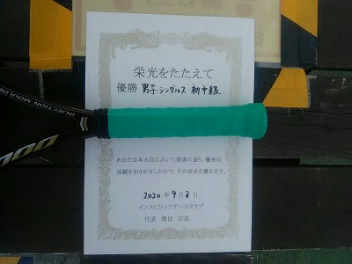 栄光をたたえて
優勝 男子シングルス 初中級
あなたは本大会において頭書の通り、優秀な
成績をおさめましたので、その栄光を讃えます。
2020年9月 日
インスピリッツテニスクラブ
代表
INJECTION MOLDING